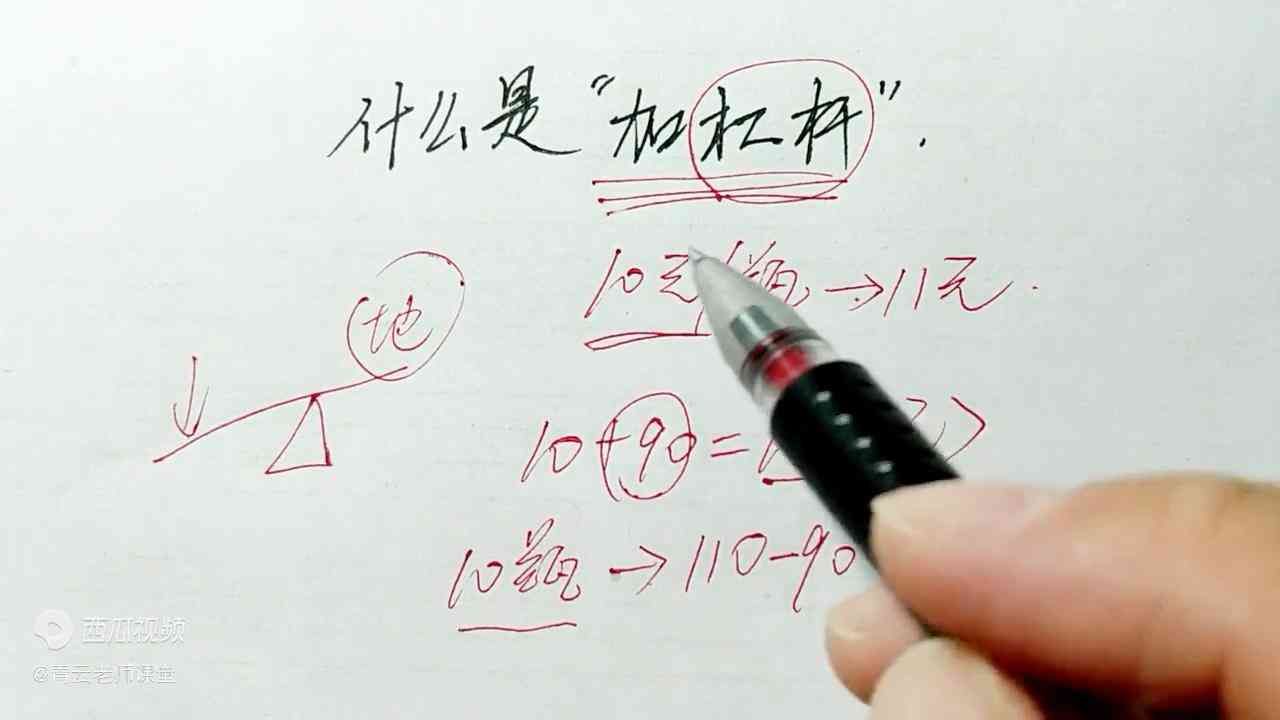 什么是“加杠杆”.
10元/瓶→11元.
地
10+90=1
10瓶→110-90
西瓜视频
@青云老师课堂